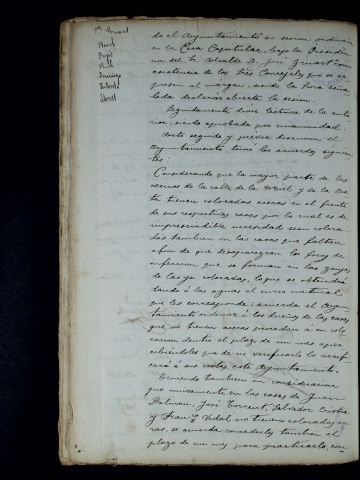 Bosch
Pujol
do el Ayuntamiento en sesion ordinaria
en la Casa Capitular, bajo la Presiden
cia del Sr. Alcalde D. José con
asistencia de los Sres Concejales que se es
presan al margen, siendo la hora seña
lada declarose abierta la sesion.
Seguidamente diose lectura de la ante
rior, siendo aprobada por unanimidad.
Acto seguido y previa discusion el
Ayuntamiento tomó los acuerdos siguien
tes:
Considerando que la mayor parte de los
vecinos de la calle de la y de la
tienen colocadas aceras en el frente
de sus respectivas casas por lo cual es de
imprescindible necesidad sean coloca
das tambien en las casas que faltan
á fin de que desaparezcan los focos de
infeccion que se forman en las
de las ya colocadas, lo que se obtendrá
dando á las aguas el curso natural
que les corresponde: acuerda el Ayun
tamiento ordenar á los dueños de las casas
que no tienen aceras procedan á su colo
cacion dentro el plazo de un mes aper
cibiéndoles que de no verificarlo lo verifi
cará á sus costas este Ayuntamiento.
Teniendo tambien en consideracion
que unicamente en las casas de Juan
Dalmau, José Torrent, Salvador
y Fran.co Vidal no tienen colocadas ace
ras, se acuerda concederles tambien el
plazo de un mes para practicarlo,